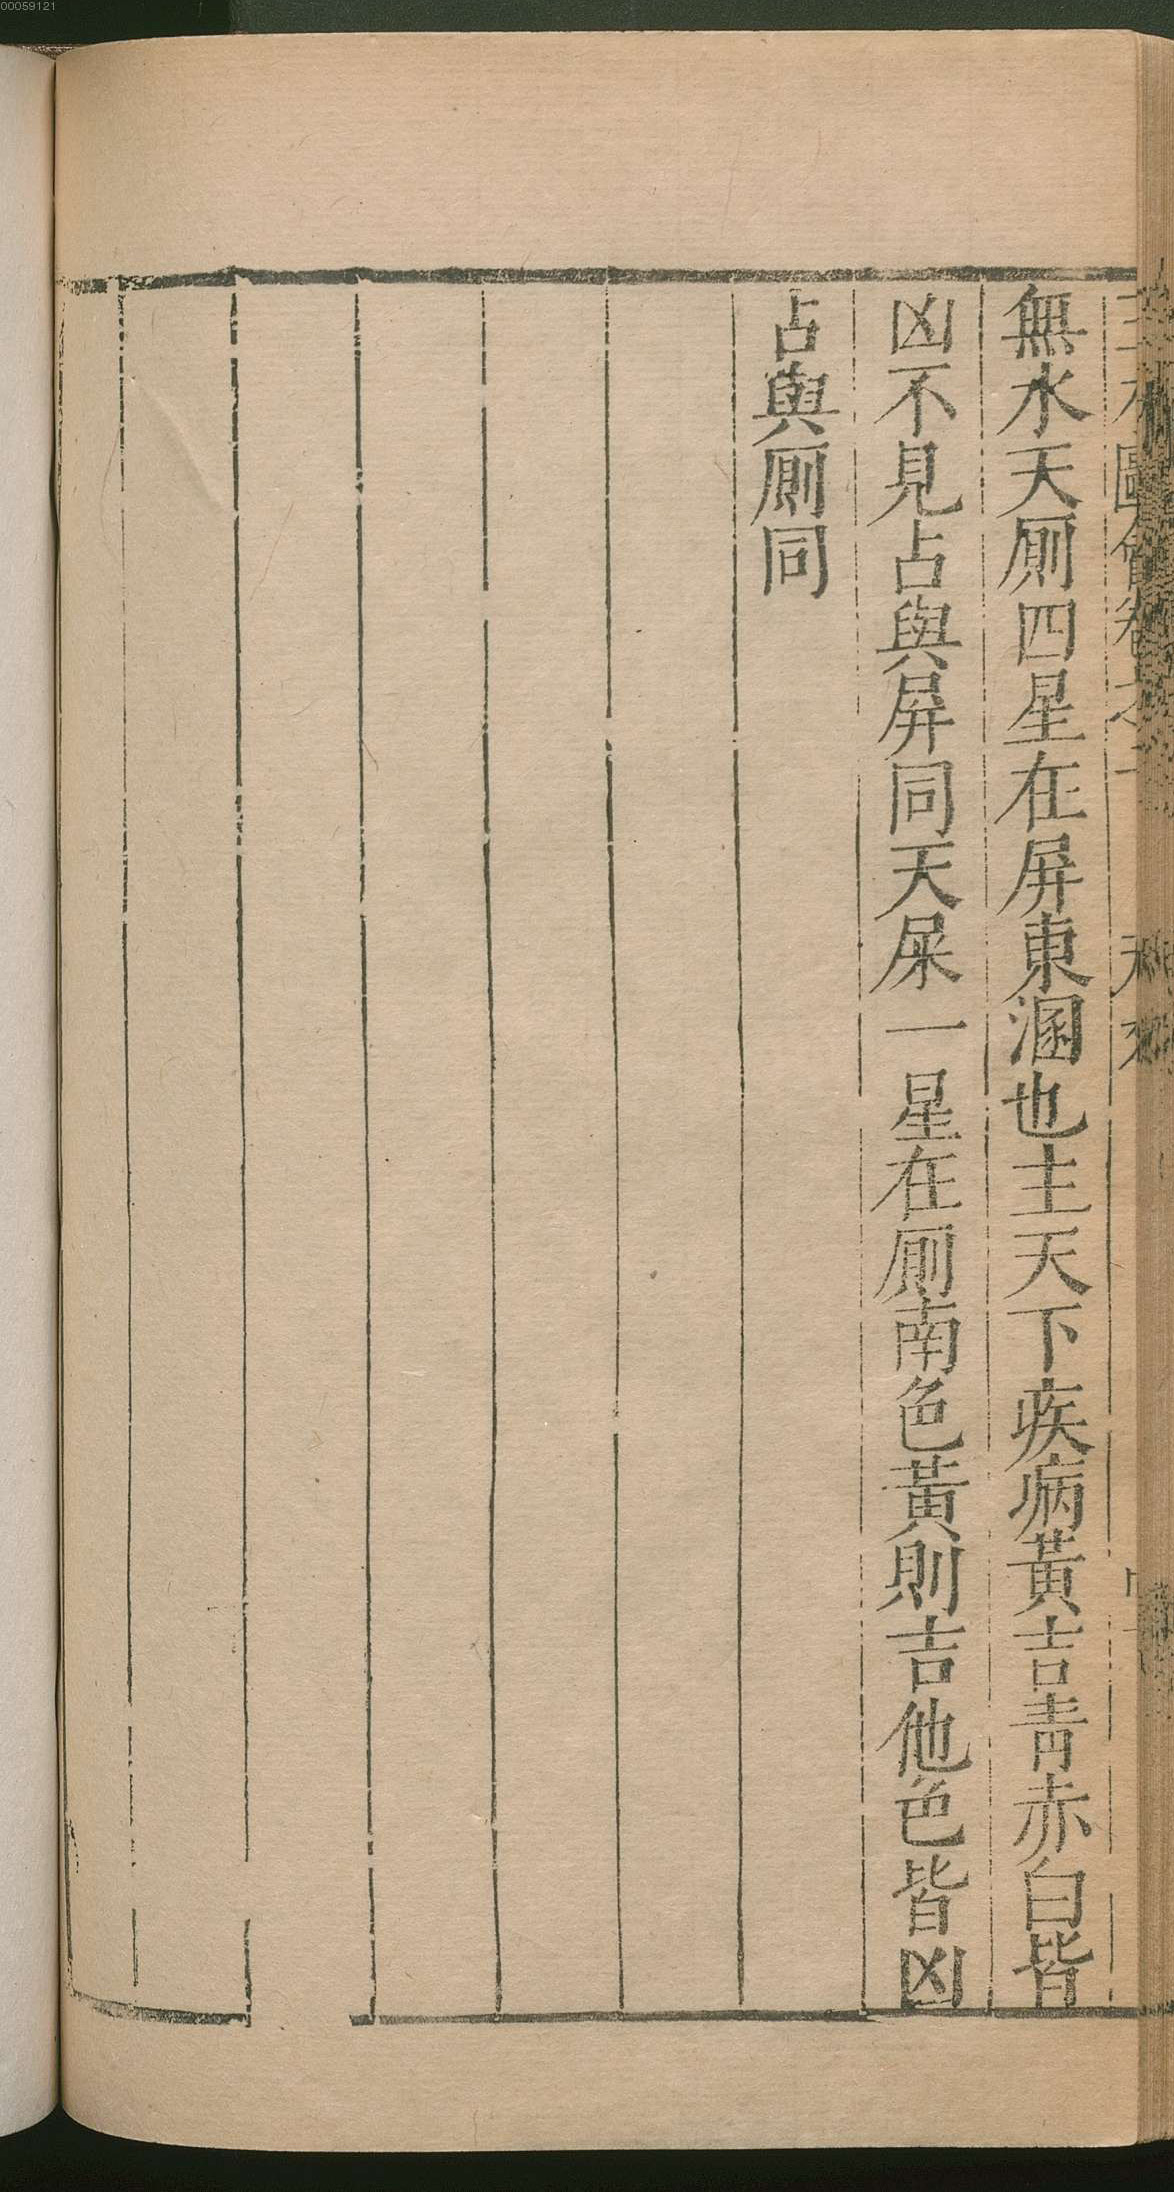 00059121
無水天厠四星在屏東溷也主天下疾病黃吉青赤白皆
凶不見占與屏同天屎一星在厠南色黃則吉他色皆凶
占與厠同